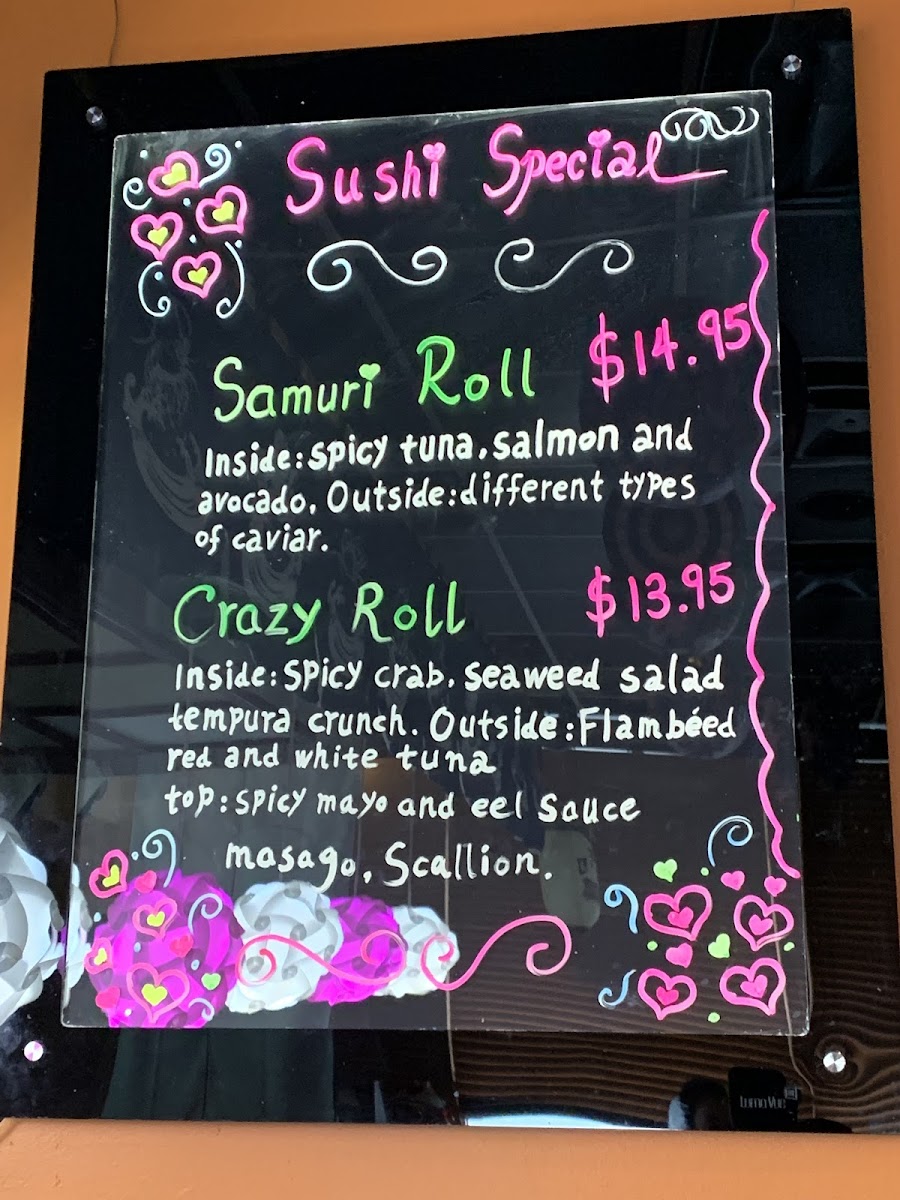 Sushi Special
Samuri Roll $14.95
Inside: Spicy tuna, salmon and
avocado. Outside: different types
of caviar.
Crazy Roll $13.95
Inside: Spicy crab, seaweed salad
tempura crunch. Outside: Flambéed
red and white tuna
top: spicy mayo and eel sauce
masago, Scallion.